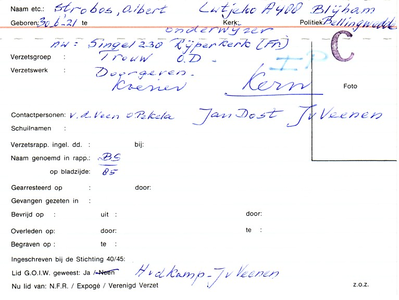 Naam etc.: Strobos, Albert Lutjeloo A400 Blijham
Geboren: 30-6-21 te Kerk: Politiek Bellingwolde
onderwijzer
AN: Singel 230 Rijperkerk (Fr)
Verzetsgroep : Trouw O.D.
Verzetswerk : Doorgeven. Kern
Koerier
C
Foto
Contactpersonen: v.d. Veen O Pekela Jan Dost J v Veenen
Schuilnaam :
Verzetsrapp. ingel. dd. : bij:
Naam genoemd in rapp.: BS
op bladzijde: 85
Gearresteerd op : door:
Gevangen gezeten in :
Bevrijd op : uit : door:
Overleden op : te: door:
Begraven op : te:
Ingeschreven bij de Stichting 40/45:
Lid G.O.I.W. geweest: Ja / Neen Hvd Kamp - Jv Veenen
Nu lid van: N.F.R. / Expogé / Verenigd Verzet z.o.z.